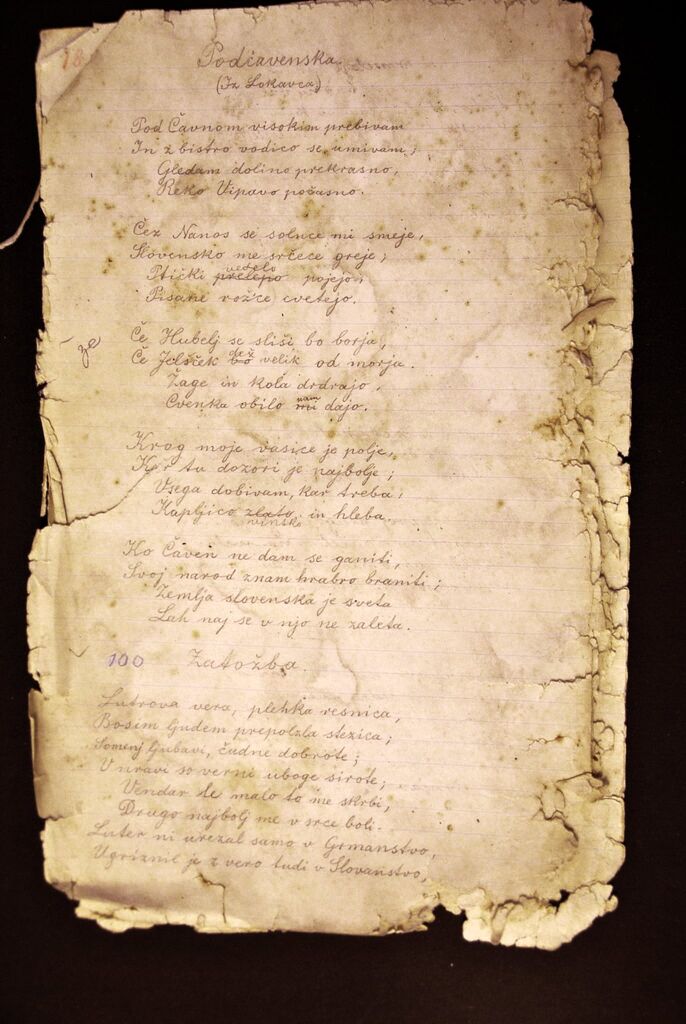 18
Podčavenska.
(Iz Lokavca)
Pod Čavnom visokim prebivam
In z bistro vodico se umivam;
Gledam dolino prekrasno,
Reko Vipavo počasno.
Čez Nanos se solnce mi smeje,
Slovensko me srčece greje;
veselo
Ptički prelepo pojejo,
Pisane rož'ce cvetejo.
Če Hubelj se sliši bo borja,
že
Če Jelšček bo velik od morja.
Žage in kola drdrajo,
nam
Cvenka obilo mi dajo.
Krog moje vasice je polje,
Ker tu dozori je najbolje;
Vsega dobivam, kar treba,
Kapljico zlato in hleba.
vinsko
Ko Čaven ne dam se ganiti,
Svoj narod znam hrabro braniti;
Zemlja slovenska je sveta
Lah naj se v njo ne zaleta.
100 Zatožba.
Lutrova vera, plehka resnica,
Bosim ljudem prepolzla stezica;
ljubavi, čudne dobrote;
V naravi so verni uboge sirote;
Vendar le malo to me skrbi,
Drugo najbolj me v srce boli.
Luter ni urezal samo v Grmanstvo,
Ugriznil je z vero tudi v Slovanstvo,